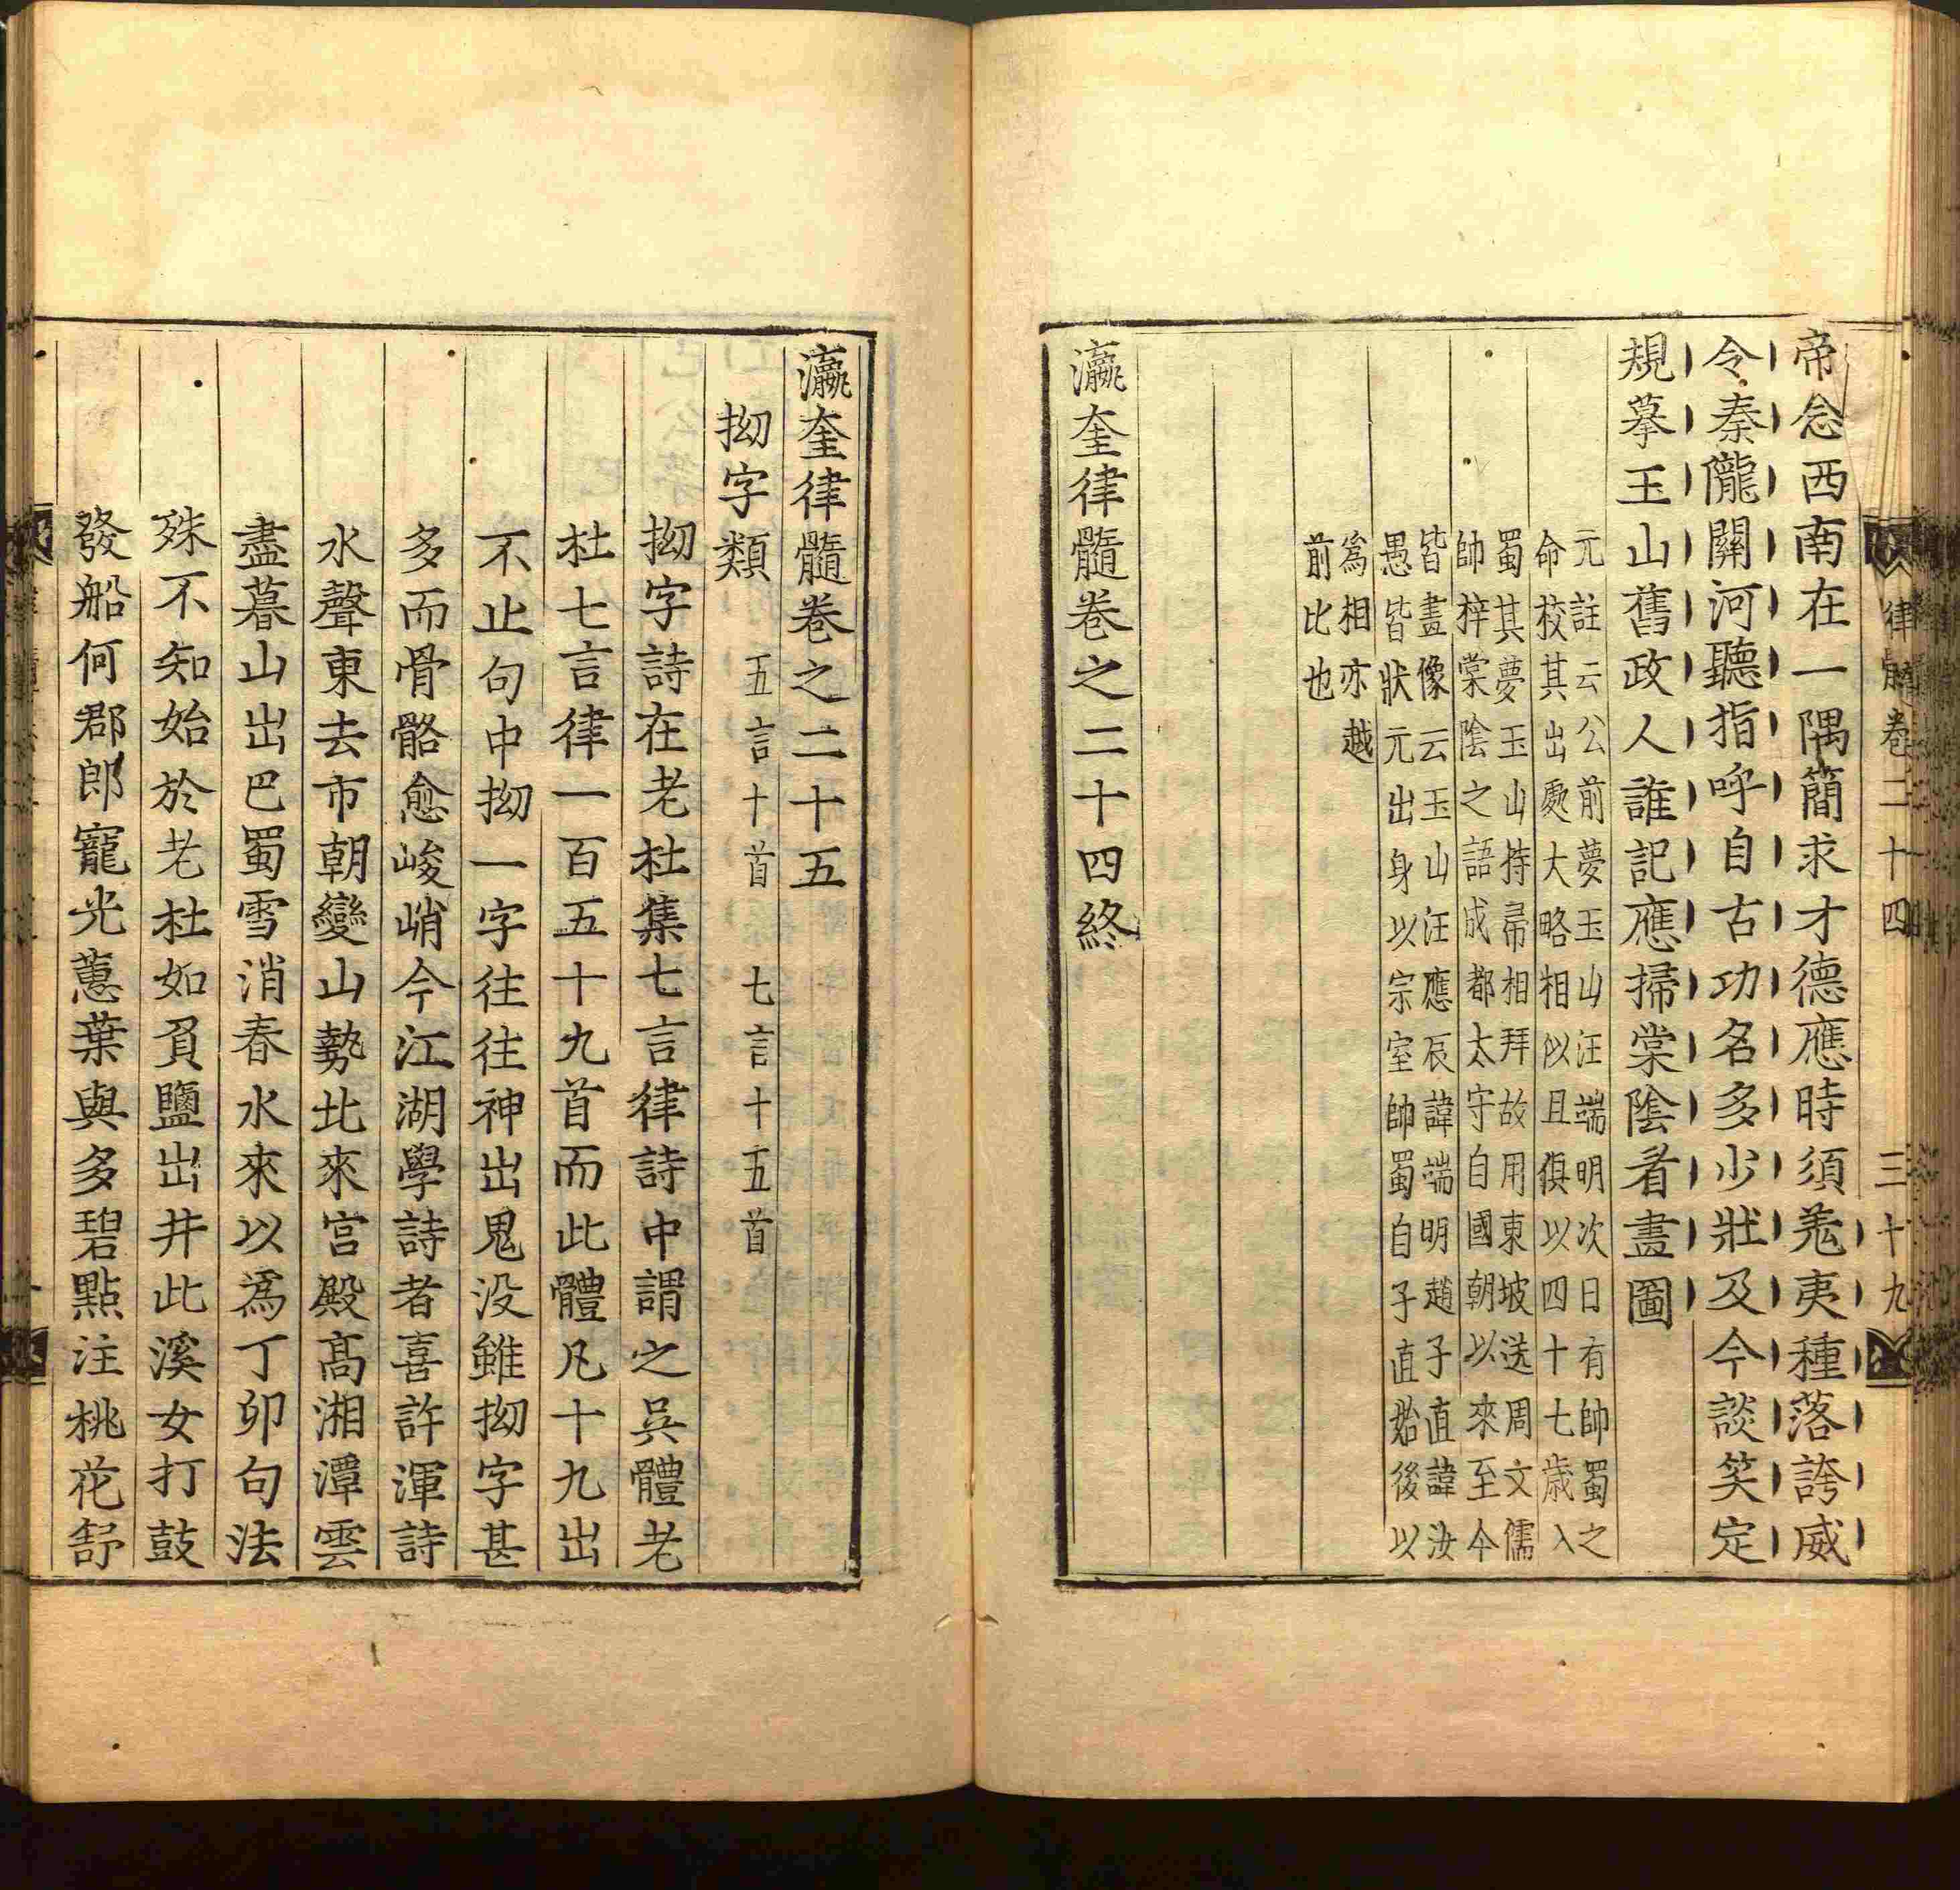 律髓卷二十四　三十九
帝念西南在一隅簡求才德應時須羗夷種落誇威
令秦隴關河聽指呼自古功名多少狀及今談笑定
規摹玉山舊政人誰記應掃棠隂看畫圖
元註云公前夢玉山汪端明次日有帥蜀之
命校其出處大略相相似且俱以四十七歲入
蜀其夢玉山持帚相拜故用東坡送周文儒
帥梓棠隂之語成都太守自國朝以來至今
皆畫像云玉山汪應辰諱端明趙子直諱汝
愚皆狀元出身以宗室帥蜀自子直始後以
為相亦越
前比也
瀛奎律髓卷之二十四終
瀛奎律髓卷之二十五
拗字類　五言十首　七言十五首
拗字詩在老杜集七言律詩中謂之吳體老
杜七言律一百五十九首而此體凡十九出
不止句中拗一字往往神出鬼没雖拗字甚
多而骨骼愈峻峭今江湖學詩者喜許渾詩
水聲東去市朝變山勢北來宫殿髙湘潭雲
盡暮山出巴蜀雪消春水來以爲丁卯句法
殊不知始於老杜如負鹽出井此溪女打鼓
發船何郡郎寵光蕙葉與多碧點注桃花舒